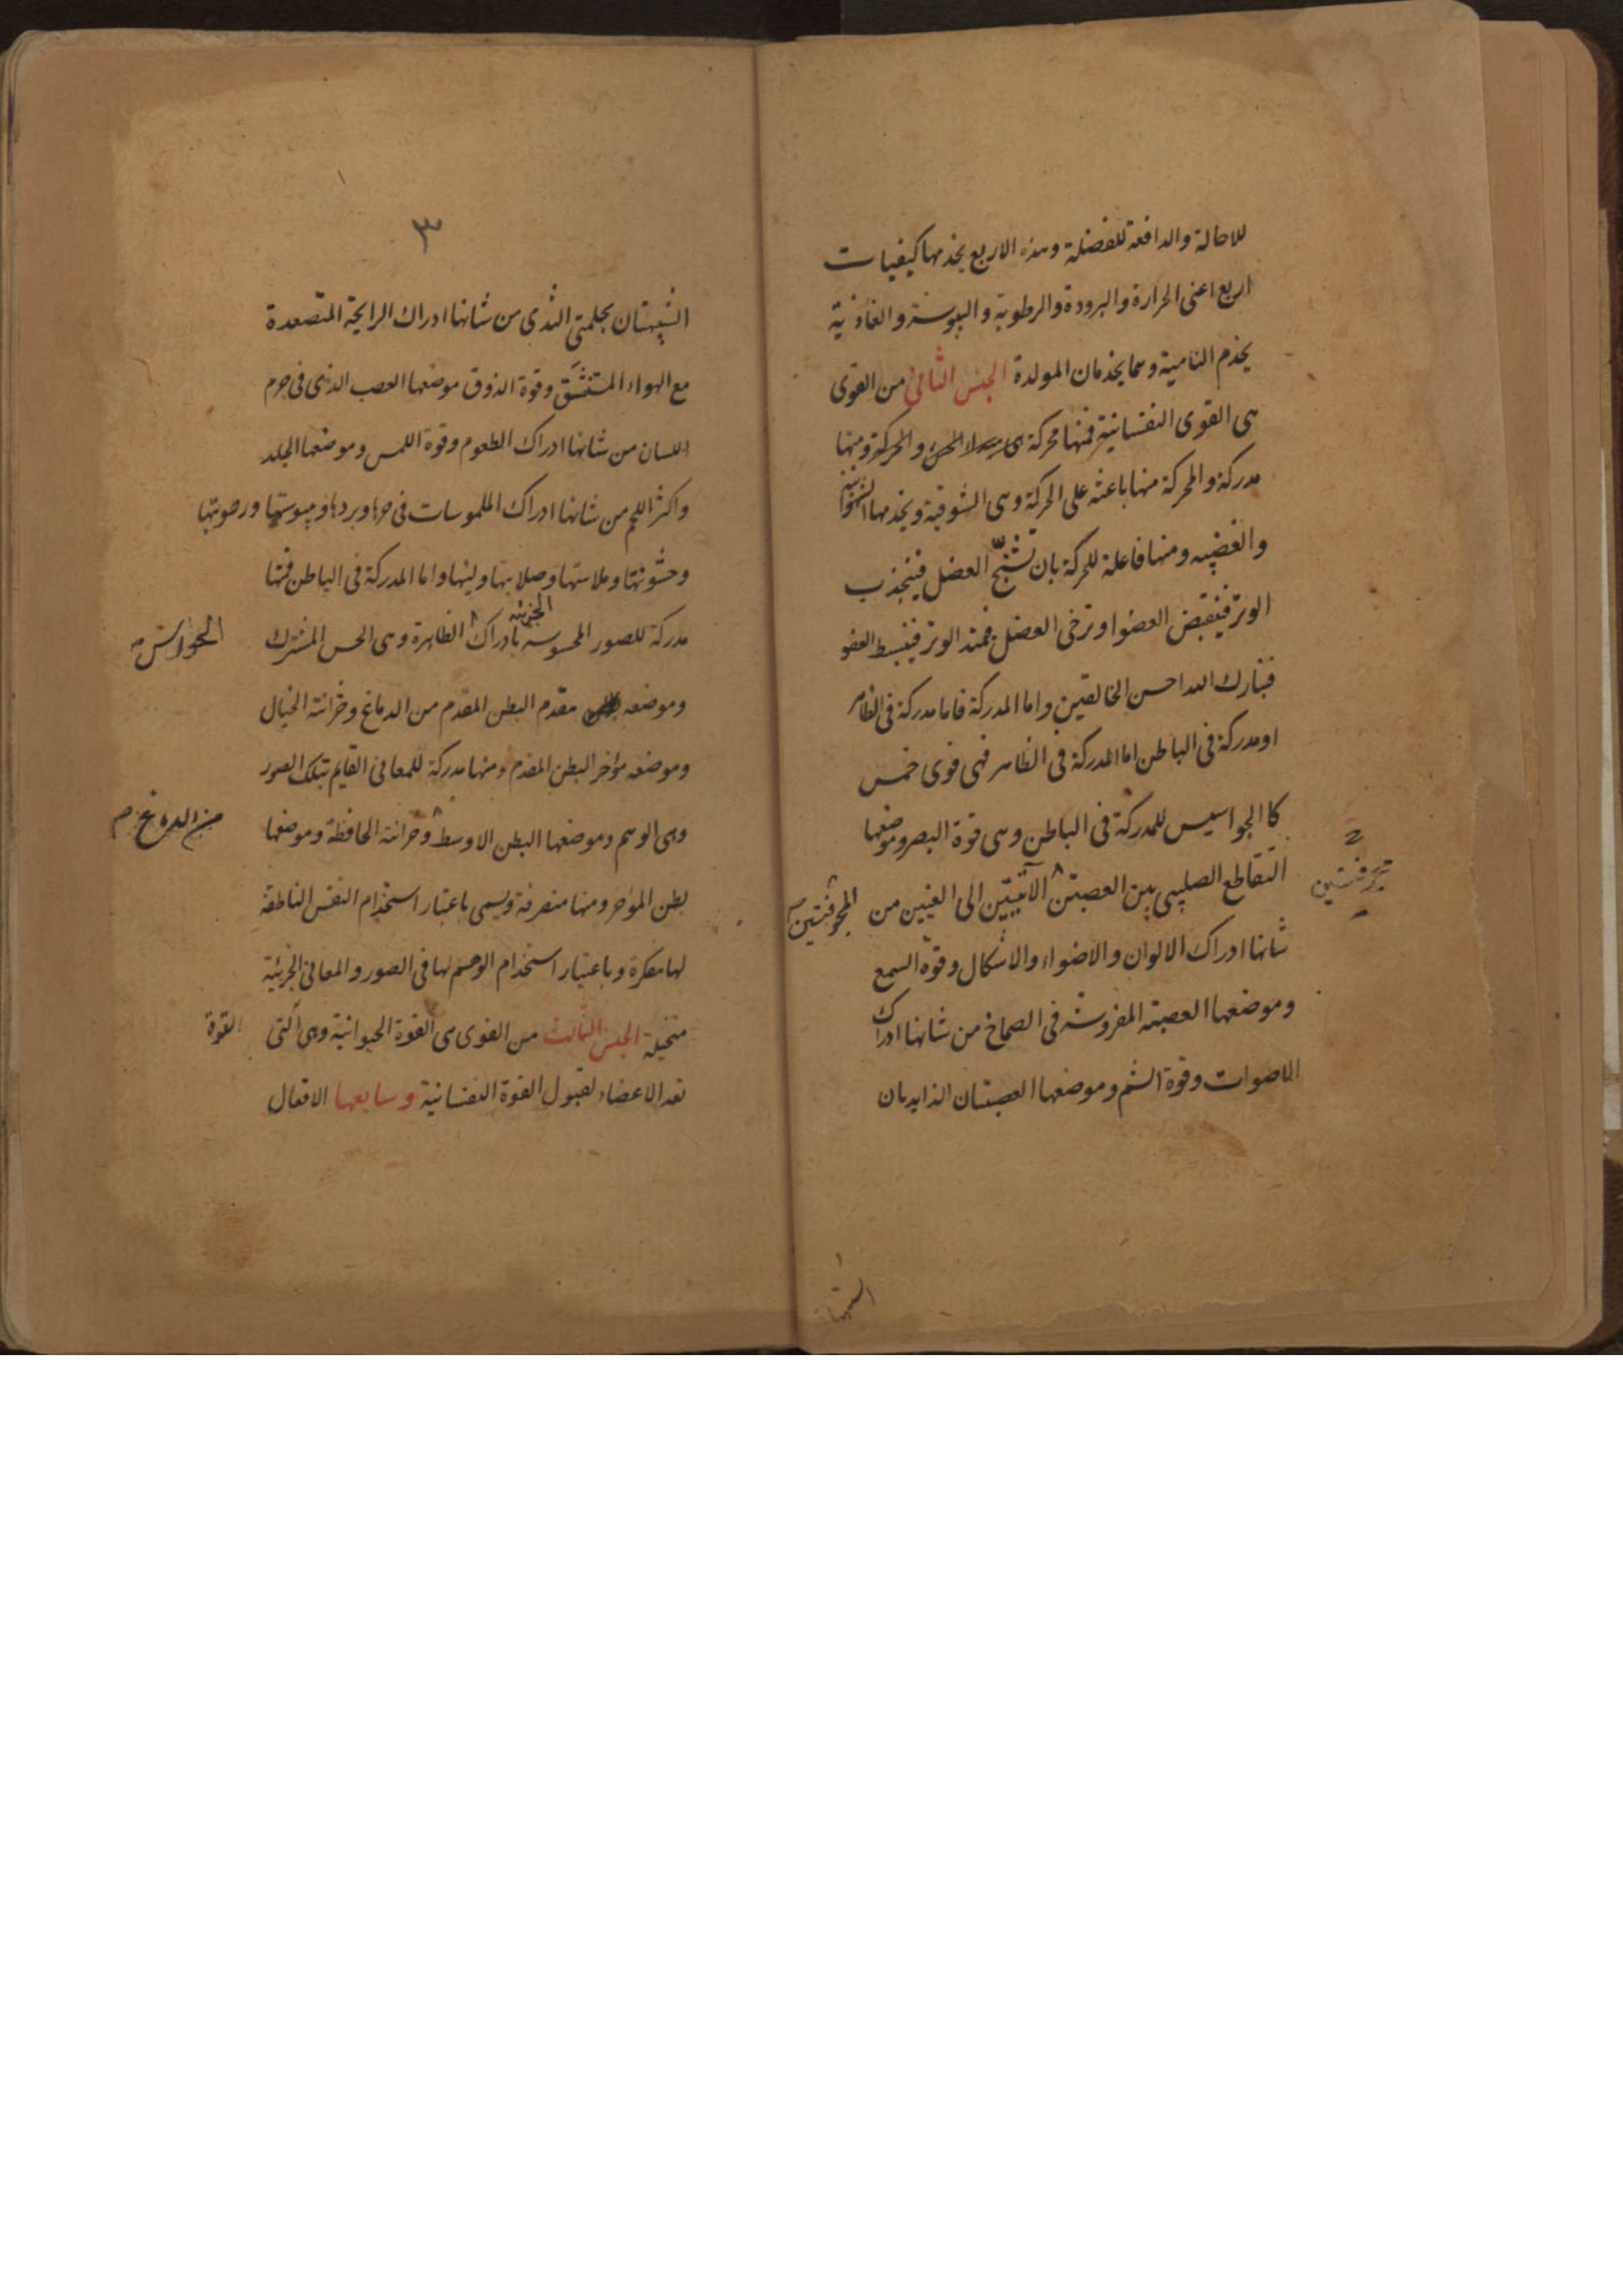 للاحالة والدافعة للفضلة وهذه الاربع يخدمها كيفيات
اربع اعنى الحرارة والبرودة والرطوبة واليبوسة والغاذية
يخدم النامية وهما يخدمان المولدة الجنس الثانى من القوى
هى القوى النفسانية فمنها محركة والحركة ومنها
مدركة والمحركة منها باعثة على الحركة وهى الشوقية ويخدمها الشهوانية
والغضبيه ومنها فاعلة للحركة بان تشنج العضل فينجذب
الوتر فينقبض العضو او ترخى العضل فيمتد الوتر فينبسط العضو
فتبارك الله احسن الخالقين واما المدركة فاما مدركة فى الظاهر
او مدركة فى الباطن اما المدركة فى الظاهر فهى قوى خمس
كالجواسيس للمدركة فى الباطن وهى قوة البصر وموضعها
التقاطع الصليبى بين العصبتين الآتيتين الى العينين من
المجوفتين
مجوفتين
شانها ادراك الالوان والاضواء والاشكال وقوة السمع
وموضعها العصبة المفروشة فى الصماخ من شانها ادراك
الاصوات وقوة الشم وموضعها العصبتان الزايدتان
٣
الشبيهتان بحلمتى الثدى من شانها ادراك الرايحة المتصعدة
مع الهواء المستنشق وقوة الذوق موضعها العصب الذى فى جرم
اللسان من شانها ادراك الطعوم وقوة اللمس وموضعها الجلد
واكثر اللحم من شانها ادراك الملموسات فى حرها وبردها ويبوستها ورطوبتها
وخشونتها وملاستها وصلابتها ولينها واما المدركة فى الباطن فمنها
مدركة للصور المحسوسه الجزئيه بادراك الظاهرة وهى الحس المشترك
الحواس
وموضعه مقدم البطن المقدم من الدماغ وخزانته الخيال
وموضعه مؤخر البطن المقدم ومنها مدركة للمعانى القايم بتلك الصور
وهى الوهم وموضعها البطن الاوسط وخزانته الحافظة وموضعها
من الدماغ
بطن المؤخر ومنها متصرفة ويسمى باعتبار استخدام النفس الناطقه
لها مفكرة وباعتبار استخدام الوهم لها فى الصور والمعانى الجزئية
متخيلة الجنس الثالث من القوى هى القوة الحيوانية وهى التى
القوة
تعد الاعضاء لقبول القوة النفسانية وسابعها الافعال